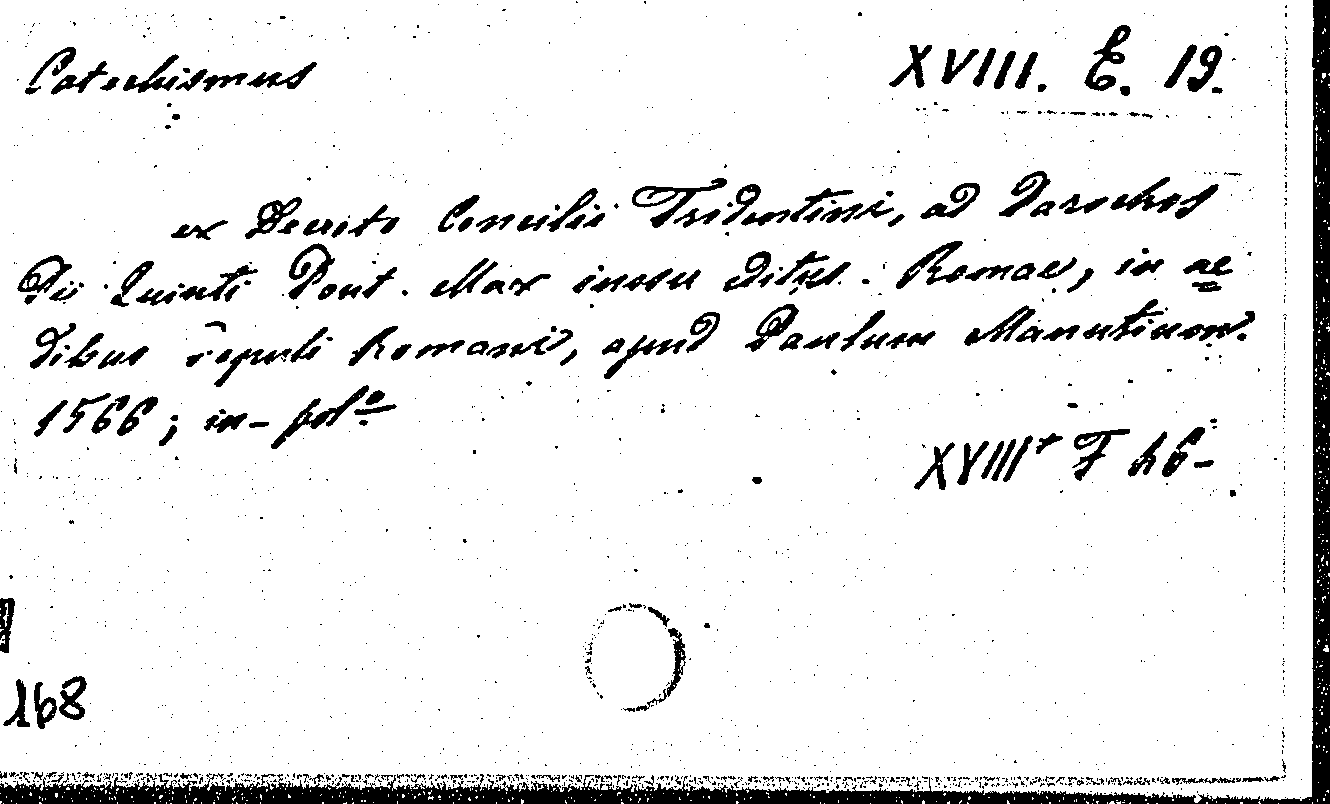 Catechismus
XVIII. E. 19.
ex Decreto Concilii Tridentini, ad Parochos
Pii Quinti Pont. Max iussu editus. Romae, in ae
dibus Populi Romani, apud Paulum Manutium.
1566; in-folº
XVIII* F 46-
168